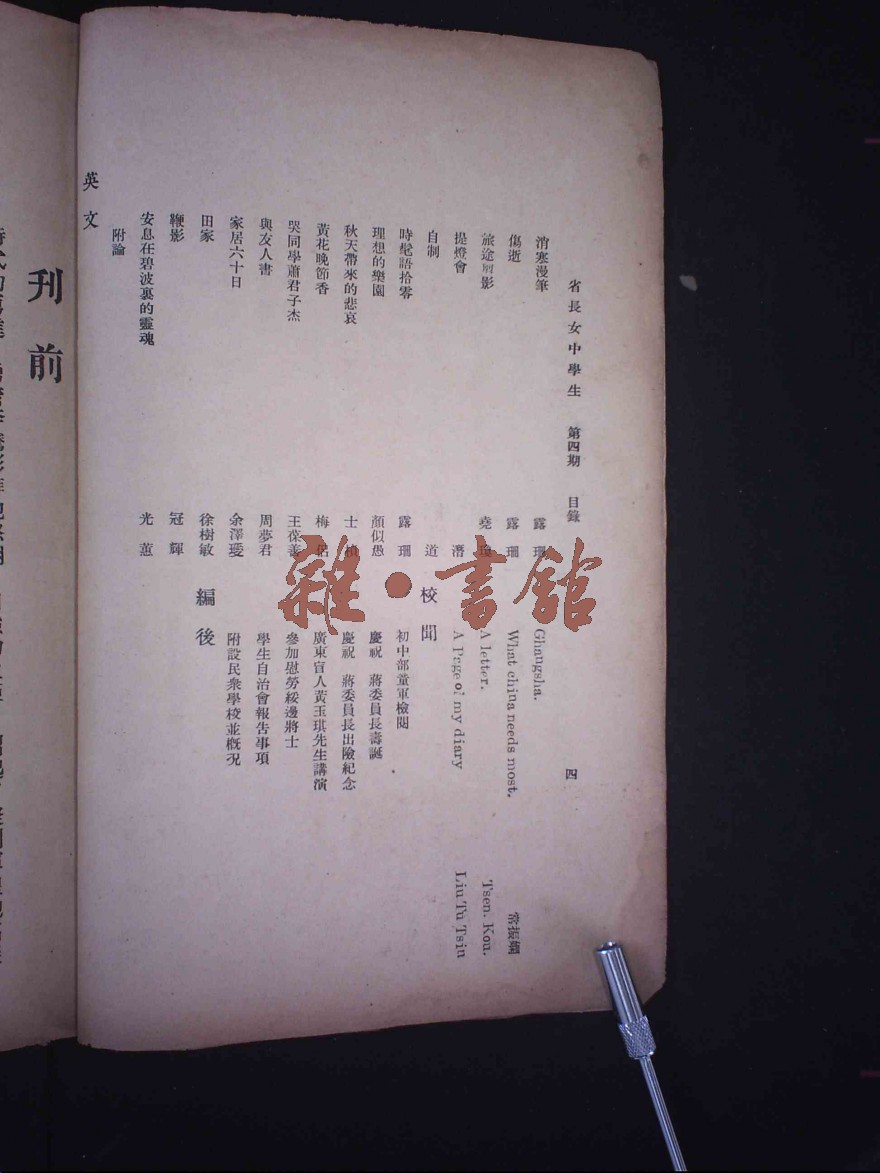 省長女中學生　第四期　目錄　四
消寒漫筆　露珊
傷逝　露珊
旅途剪影　堯
提燈會　潛
自制　道
時髦語拾零　露珊
理想的樂園　顏似愚
秋天帶來的悲哀　士
黃花晚節香　梅侶
哭同學蕭君子杰　王葆善
與友人書　周夢君
家居六十日　余澤瓊
田家　徐樹敏
鞭影　冠輝
安息在碧波裏的靈魂　光蕙
附論
英文
Ghangsha.
What china needs most.　常振嫻
A letter.　Tsen. Kou.
A Page of my diary　Liu Tu Tsiu
校聞
初中部童軍檢閱
慶祝　蔣委員長壽誕
慶祝　蔣委員長出險紀念
廣東盲人黃玉琪先生講演
參加慰勞綏邊將士
學生自治會報告事項
附設民衆學校並概況
編後
刊前
雜·書館